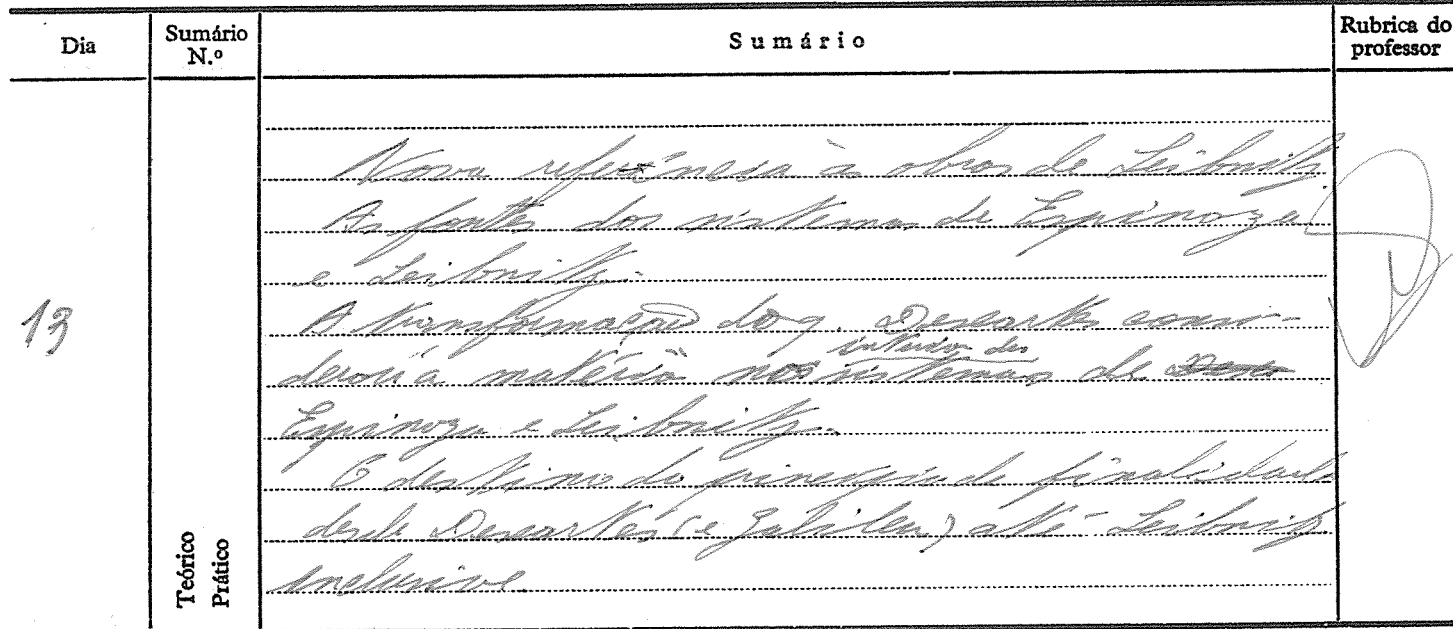 Dia
Sumário N.º
Sumário
Rubrica do professor
13
Teórico
Prático
Nova referência às obras de Leibnitz
As fontes dos sistemas de Espinoza
e Leibnitz.
A transformação do q. Descartes consi-
derou a matéria no interior dos sistemas de
Espinoza e Leibnitz.
O destino do princípio de finalidade
desde Descartes (e Galileu) até Leibniz
inclusive.